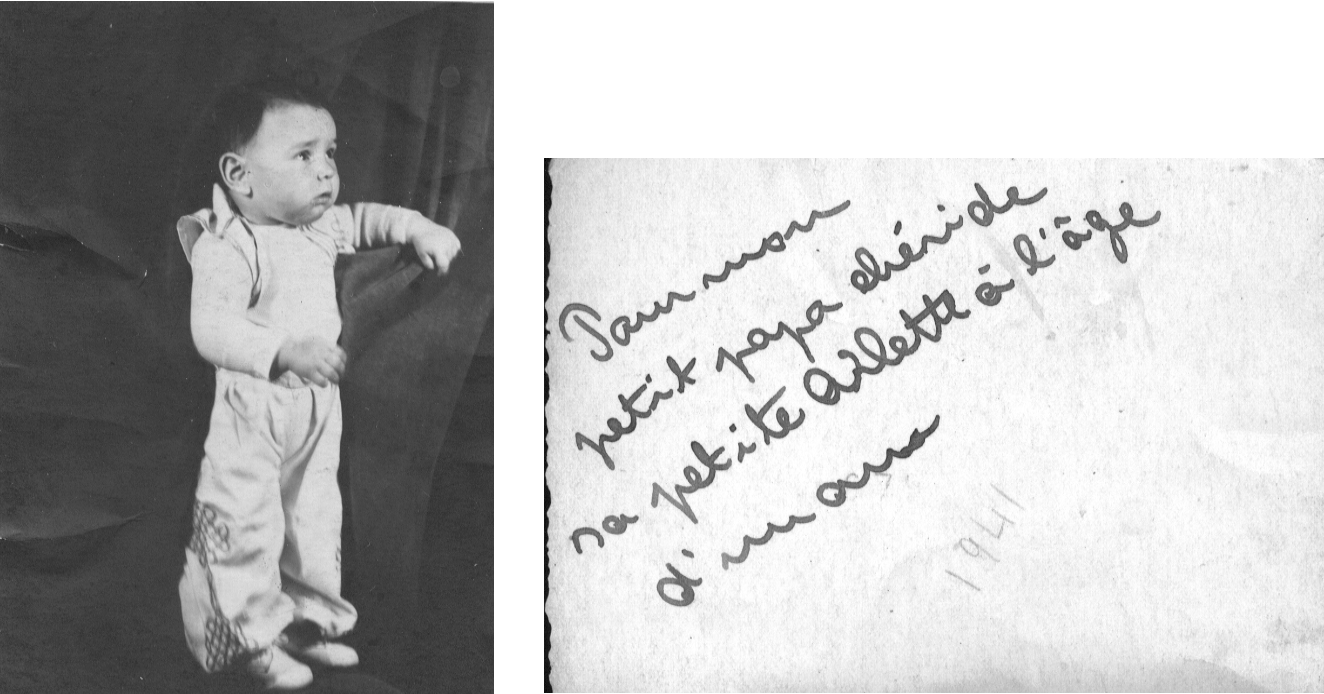 Pour mon
petit papa chéri de
sa petite Arlette à l'âge
d'un ans
1941